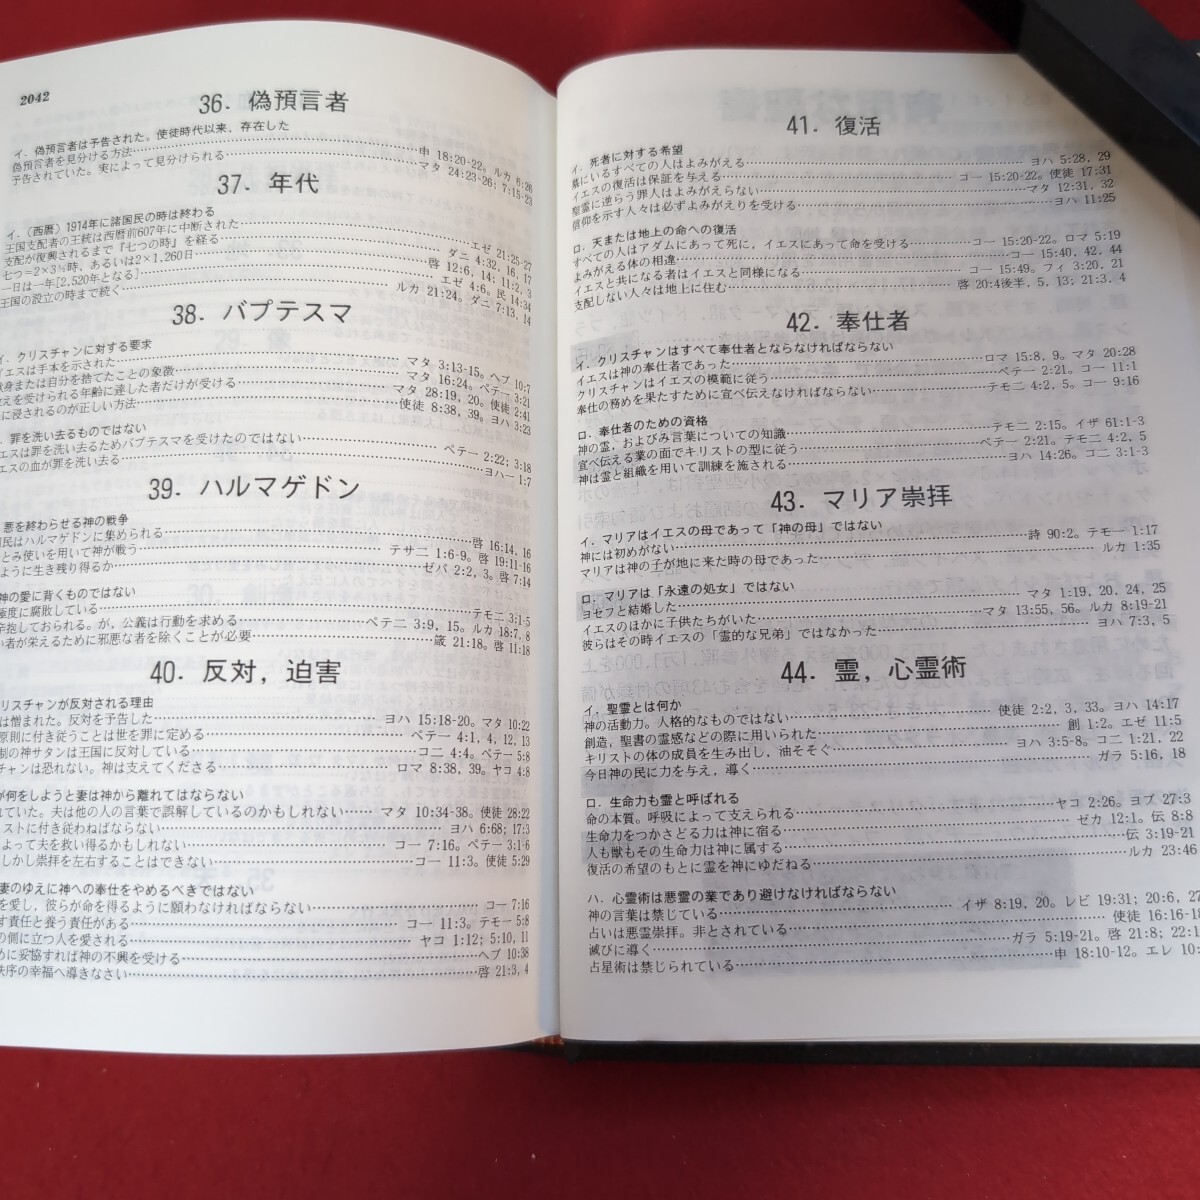 2042
36. 偽預言者
イ. 偽預言者は予告された。使徒時代以来, 存在した
偽預言者を見分ける方法……申 18:20-22。ルカ 6:26
予告されていた。実によって見分けられる……マタ 24:23-26; 7:15-23
37. 年代
イ. (西暦) 1914年に諸国民の時は終わる
王国支配者の王統は西暦前607年に中断された……エゼ 21:25-27
支配が復興されるまで『七つの時』を経る……ダニ 4:32, 16, 17
七つ=2×3½時, あるいは2×1,260日……啓 12:6, 14; 11:2, 3
一日は一年[2,520年となる]……エゼ 4:6。民 14:34
王国の設立の時まで続く……ルカ 21:24。ダニ 7:13, 14
38. バプテスマ
イ. クリスチャンに対する要求
イエスは手本を示された……マタ 3:13-15。ヘブ 10:7
献身または自分を捨てたことの象徴……マタ 16:24。ペテ一 3:21
教えを受けられる年齢に達した者だけが受ける……マタ 28:19, 20。使徒 2:41
に浸されるのが正しい方法……使徒 8:38, 39。ヨハ 3:23
罪を洗い去るものではない
エスは罪を洗い去るためバプテスマを受けたのではない……ペテ一 2:22; 3:18
エスの血が罪を洗い去る……ヨハ一 1:7
39. ハルマゲドン
悪を終わらせる神の戦争
国民はハルマゲドンに集められる……啓 16:14, 16
とみ使いを用いて神が戦う……テサ二 1:6-9。啓 19:11-16
ように生き残り得るか……ゼパ 2:2, 3。啓 7:14
神の愛に背くものではない
極度に腐敗している……テモ二 3:1-5
辛抱しておられる。が, 公義は行動を求める……ペテ二 3:9, 15。ルカ 18:7, 8
い者が栄えるために邪悪な者を除くことが必要……箴 21:18。啓 11:18
40. 反対, 迫害
クリスチャンが反対される理由
は憎まれた。反対を予告した……ヨハ 15:18-20。マタ 10:22
原則に付き従うことは世を罪に定める……ペテ一 4:1, 4, 12, 13
制の神サタンは王国に反対している……コ二 4:4。ペテ一 5:8
チャンは恐れない。神は支えてくださる……ロマ 8:38, 39。ヤコ 4:8
が何をしようと妻は神から離れてはならない
れていた。夫は他の人の言葉で誤解しているのかもしれない……マタ 10:34-38。使徒 28:22
リストに付き従わねばならない……ヨハ 6:68; 17:3
よって夫を救い得るかもしれない……コ一 7:16。ペテ一 3:1-6
しかし崇拝を左右することはできない……コ一 11:3。使徒 5:29
妻のゆえに神への奉仕をやめるべきではない
を愛し, 彼らが命を得るように願わなければならない……コ一 7:16
す責任と養う責任がある……コ一 11:3。テモ一 5:8
の側に立つ人を愛される……ヤコ 1:12; 5:10, 11
めに妥協すれば神の不興を受ける……ヘブ 10:38
秩序の幸福へ導きなさい……啓 21:3, 4
41. 復活
イ. 死者に対する希望
墓にいるすべての人はよみがえる……ヨハ 5:28, 29
イエスの復活は保証を与える……コ一 15:20-22。使徒 17:31
聖霊に逆らう罪人はよみがえらない……マタ 12:31, 32
信仰を示す人々は必ずよみがえりを受ける……ヨハ 11:25
ロ. 天または地上の命への復活
すべての人はアダムにあって死に, イエスにあって命を受ける……コ一 15:20-22。ロマ 5:19
よみがえる体の相違……コ一 15:40, 42, 44
イエスと共になる者はイエスと同様になる……コ一 15:49。フィ 3:20, 21
支配しない人々は地上に住む……啓 20:4後半, 5, 13; 21:3, 4
42. 奉仕者
イ. クリスチャンはすべて奉仕者とならなければならない
イエスは神の奉仕者であった……ロマ 15:8, 9。マタ 20:28
クリスチャンはイエスの模範に従う……ペテ一 2:21。コ一 11:1
奉仕の務めを果たすために宣べ伝えなければならない……テモ二 4:2, 5。コ一 9:16
ロ. 奉仕者のための資格
神の霊, およびみ言葉についての知識……テモ二 2:15。イザ 61:1-3
宣べ伝える業の面でキリストの型に従う……ペテ一 2:21。テモ二 4:2, 5
神は霊と組織を用いて訓練を施される……ヨハ 14:26。コ二 3:1-3
43. マリア崇拝
イ. マリアはイエスの母であって「神の母」ではない
神には初めがない……詩 90:2。テモ一 1:17
マリアは神の子が地に来た時の母であった……ルカ 1:35
ロ. マリアは「永遠の処女」ではない
ヨセフと結婚した……マタ 1:19, 20, 24, 25
イエスのほかに子供たちがいた……マタ 13:55, 56。ルカ 8:19-21
彼らはその時イエスの「霊的な兄弟」ではなかった……ヨハ 7:3, 5
44. 霊, 心霊術
イ. 聖霊とは何か
神の活動力。人格的なものではない……使徒 2:2, 3, 33。ヨハ 14:17
創造, 聖書の霊感などの際に用いられた……創 1:2。エゼ 11:5
キリストの体の成員を生み出し, 油そそぐ……ヨハ 3:5-8。コ二 1:21, 22
今日神の民に力を与え, 導く……ガラ 5:16, 18
ロ. 生命力も霊と呼ばれる
命の本質。呼吸によって支えられる……ヤコ 2:26。ヨブ 27:3
生命力をつかさどる力は神に宿る……ゼカ 12:1。伝 8:8
人も獣もその生命力は神に属する……伝 3:19-21
復活の希望のもとに霊を神にゆだねる……ルカ 23:46
ハ. 心霊術は悪霊の業であり避けなければならない
神の言葉は禁じている……イザ 8:19, 20。レビ 19:31; 20:6, 27
占いは悪霊崇拝。非とされている……使徒 16:16-18
滅びに導く……ガラ 5:19-21。啓 21:8; 22:1
占星術は禁じられている……申 18:10-12。エレ 10: